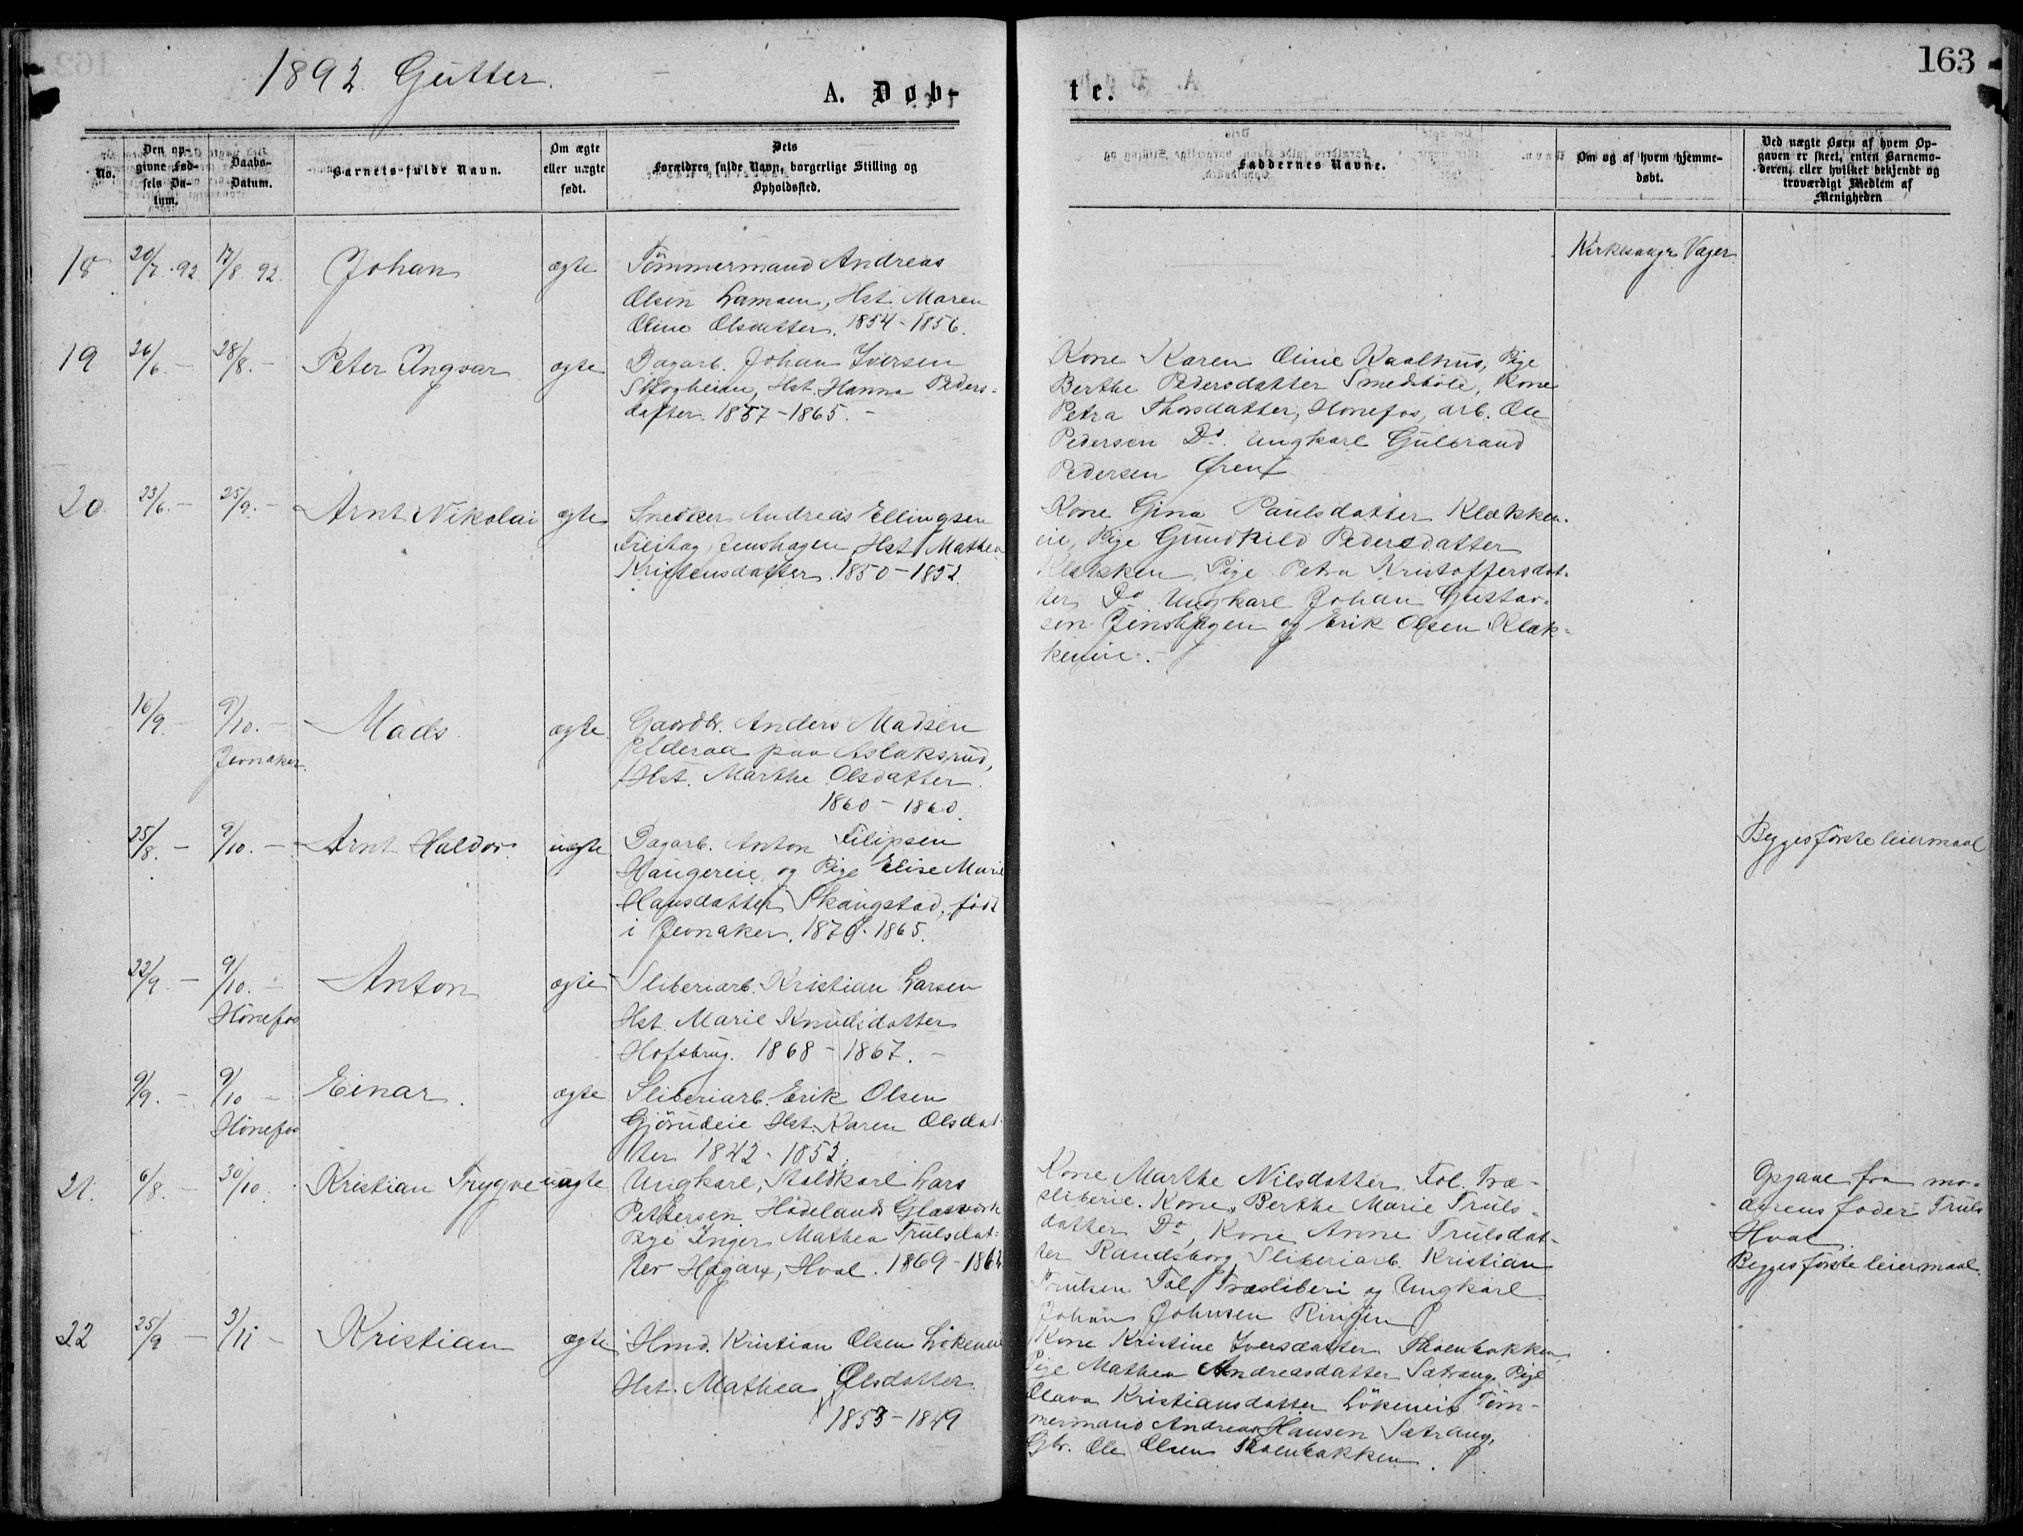 163
1892 Gutter.
A. Døb-
te.
No.
Den op-
givne Fød-
sels Da-
tum.
Daabs-
Datum.
Barnets fulde Navn.
Om ægte
eller uægte
født.
Dets
Forældres fulde Navn, borgerlige Stilling og
Opholdssted.
Faddernes Navne.
Om og af hvem hjemme-
døbt.
Ved uægte Børn af hvem Op-
gaven er skeet, enten Barnemo-
deren, eller hvilket bekjendt og
troværdigt Medlem af
Menigheden
18 20/7 92 17/8 92. Johan ægte Tömmermand Andreas
Olsen Lamoen, Hst. Maren
Oline Olsdatter. 1854-1856.
Kirkesangr. Vager
19 26/6. - 28/8. - Peter Ingvar ægte Dagarb. Johan Iversen
Skogheim, Hst. Hanna Peders-
datter. 1857-1865. -
Kone Karen Oline Kaalhus, Pige
Berthe Pedersdatter Smedsböle, Kone
Petra Thorsdatter, Hönefos, arb. Ole
Pedersen Do. Ungkarl Gulbrand
Pedersen Ören
20 23/6. - 25/9. - Arnt Nikolai ægte Snedker Andreas Ellingsen
Freitag, Jenshagen Hst. Mathea
Kristensdatter. 1850-1852.
Kone Gina Paulsdatter Klækken-
eie, Pige Gundhild Pedersdatter
Klækken, Pige Petra Kristoffersdat-
ter Do Ungkarl Johan Gustav-
sen Jenshagen og Erik Olsen Klæk-
keneie. -
16/9. 9/10. - Mads ægte Gaardbr. Anders Madsen
Jevnaker.
paa Aslaksrud,
Hst. Marthe Olsdatter.
1860-1860.
25/8. - 9/10. - Arnt Haldor uægte Dagarb. Anton Filipsen
Haugereie og Pige Elise Marie
Hansdatter Skaugstad, född
i Jevnaker. 1870-1865.
Begges förste leiermaal
22/9. - 9/10. - Anton ægte Sliberiarb. Kristian Larsen
Hönefos
Hst. Marie Knudsdatter
Hofsbrug. 1868-1867. -
9/9. - 9/10 - Einar. ægte Sliberiarb. Erik Olsen
Hönefos
Gjörudeie Hst. Karen Olsdat-
ter 1842-1852.
21. 6/8. - 30/10. Kristian Trygve uægte Ungkarl, Staldkarl Lars
Pettersen Hadelands Glasværk
Pige Inger Mathea Trulsdat-
ter Hagan, Hval. 1869-186
Kone Marthe Nilsdatter Fol. Træ-
sliberie. Kone, Berthe Marie Truls-
datter Do, Kone Anne Trulsdat-
ter Randsborg Sliberiarb. Kristian
Trulsen Fol Træsliberi og Ungkarl
Johan Johnsen Ringen
Opgave fra mo-
derens fader Truls
Hval.
Begges förste leiermaal.
22 25/9 - 3/11 - Kristian ægte Hmd. Kristian Olsen Lökeneie
Hst. Mathea Olsdatter
1853-1849
Kone Kristine Iversdatter Moenbakken
Pige Mathea Andreasdatter Sætrang, Pige
Olava Kristiansdatter Lökeneie Töm-
mermand Andreas Hansen Sætrang,
Gbr. Ole Olsen Moenbakken.